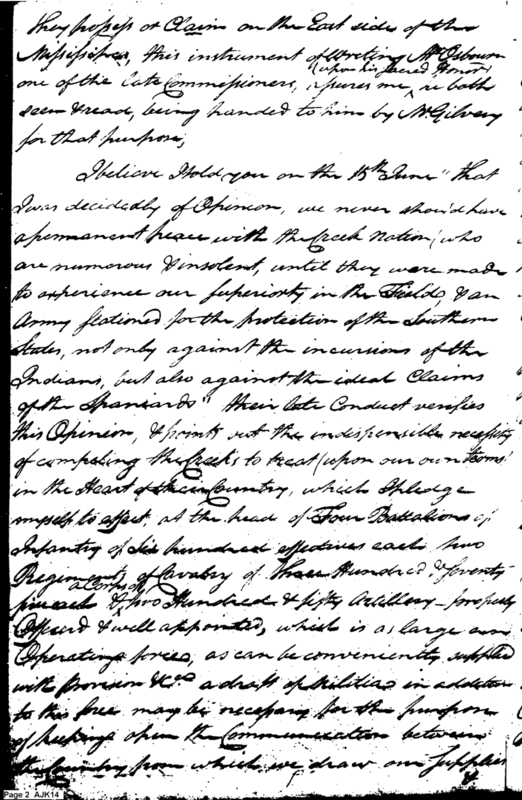 they possess or Claim on the East side of the
Missisippi, this instrument of Writing Mr Osbourn
(upon his Sacred Honor)
one of the late Commissioners, assures me, he both
seen & read, being handed to him by McGilvery
for that purpose,
I believe I told you on the 15th June "that
I was decidedly of Opinion, we never should have
a permanent peace with the Creek Nation, (who
are numerous & insolent, until they were made
to experience our superiority in the Field, & an
Army stationed for the protection of the Southern
States, not only against the incursions of the
Indians, but also against the ideal Claims
of the Spaniards" their late Conduct verifies
this Opinion, & points out the indispensible necessity
of compeling the Creeks to treat (upon our own terms)
in the Heart of their Country, which I pledge
myself to effect, at the head of Four Battalions of
Infantry of Six hundred effectives each two
Regiments of Cavalry of Three Hundred & seventy
a Corps of
five each & two Hundred & fifty Artillery - properly
Officered & well appointed, which is as large an
Operating force, as can be conveniently supplied
with provision &ca. a draft of Militia in addition
to this force may be necessary for the purpose
of keeping open the Communication between
the Country from which we draw our Supplies
&
Page 2 AJK14